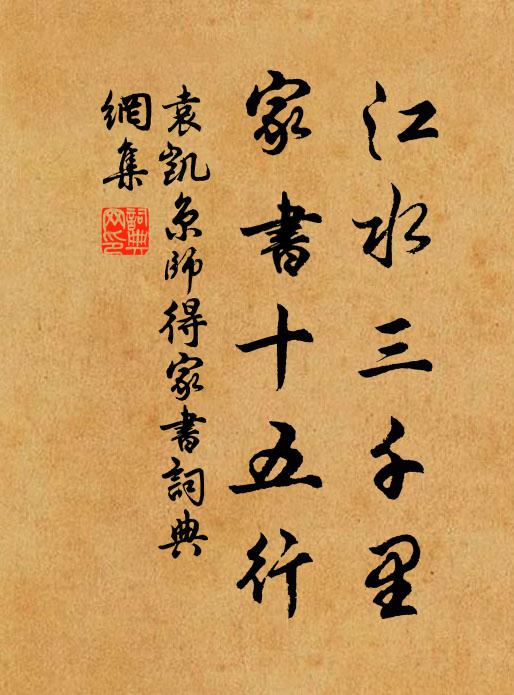 江水三千里
家書十五行
袁凱京師得家書詞典
網集
詞典
网印